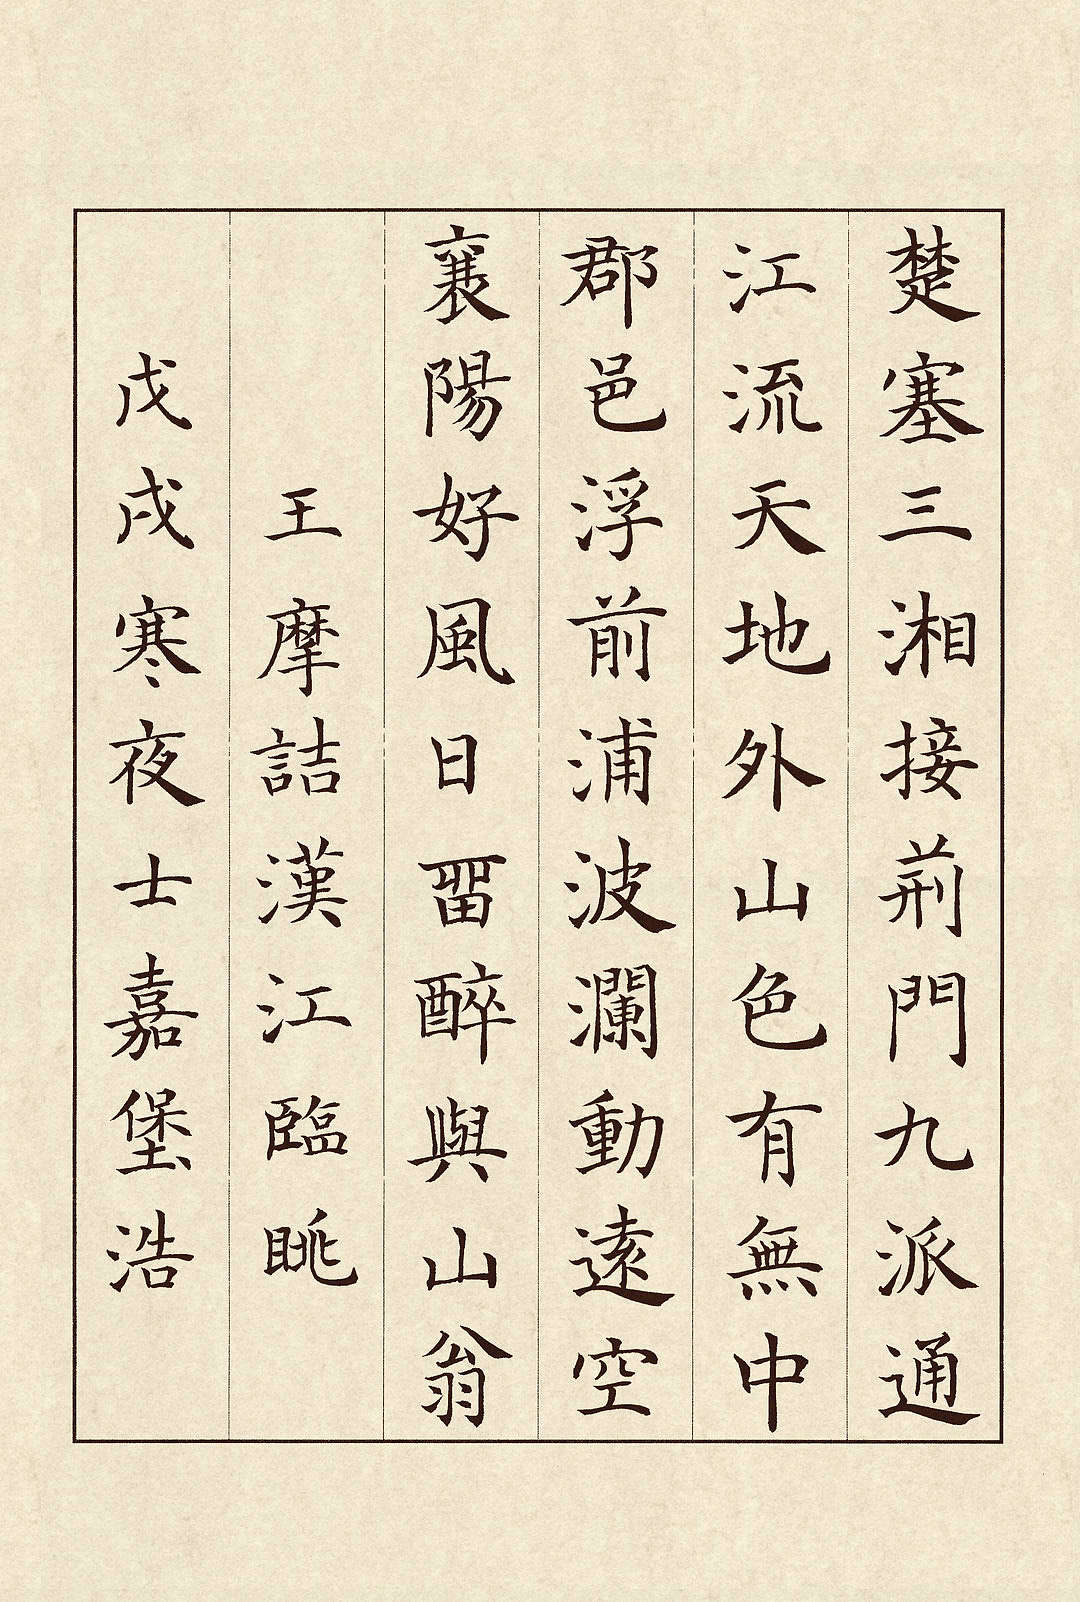 楚塞三湘接荊門九派通
江流天地外山色有無中
郡邑浮前浦波瀾動遠空
襄陽好風日留醉與山翁
王摩詰漢江臨眺
戊戌寒夜士嘉堡浩